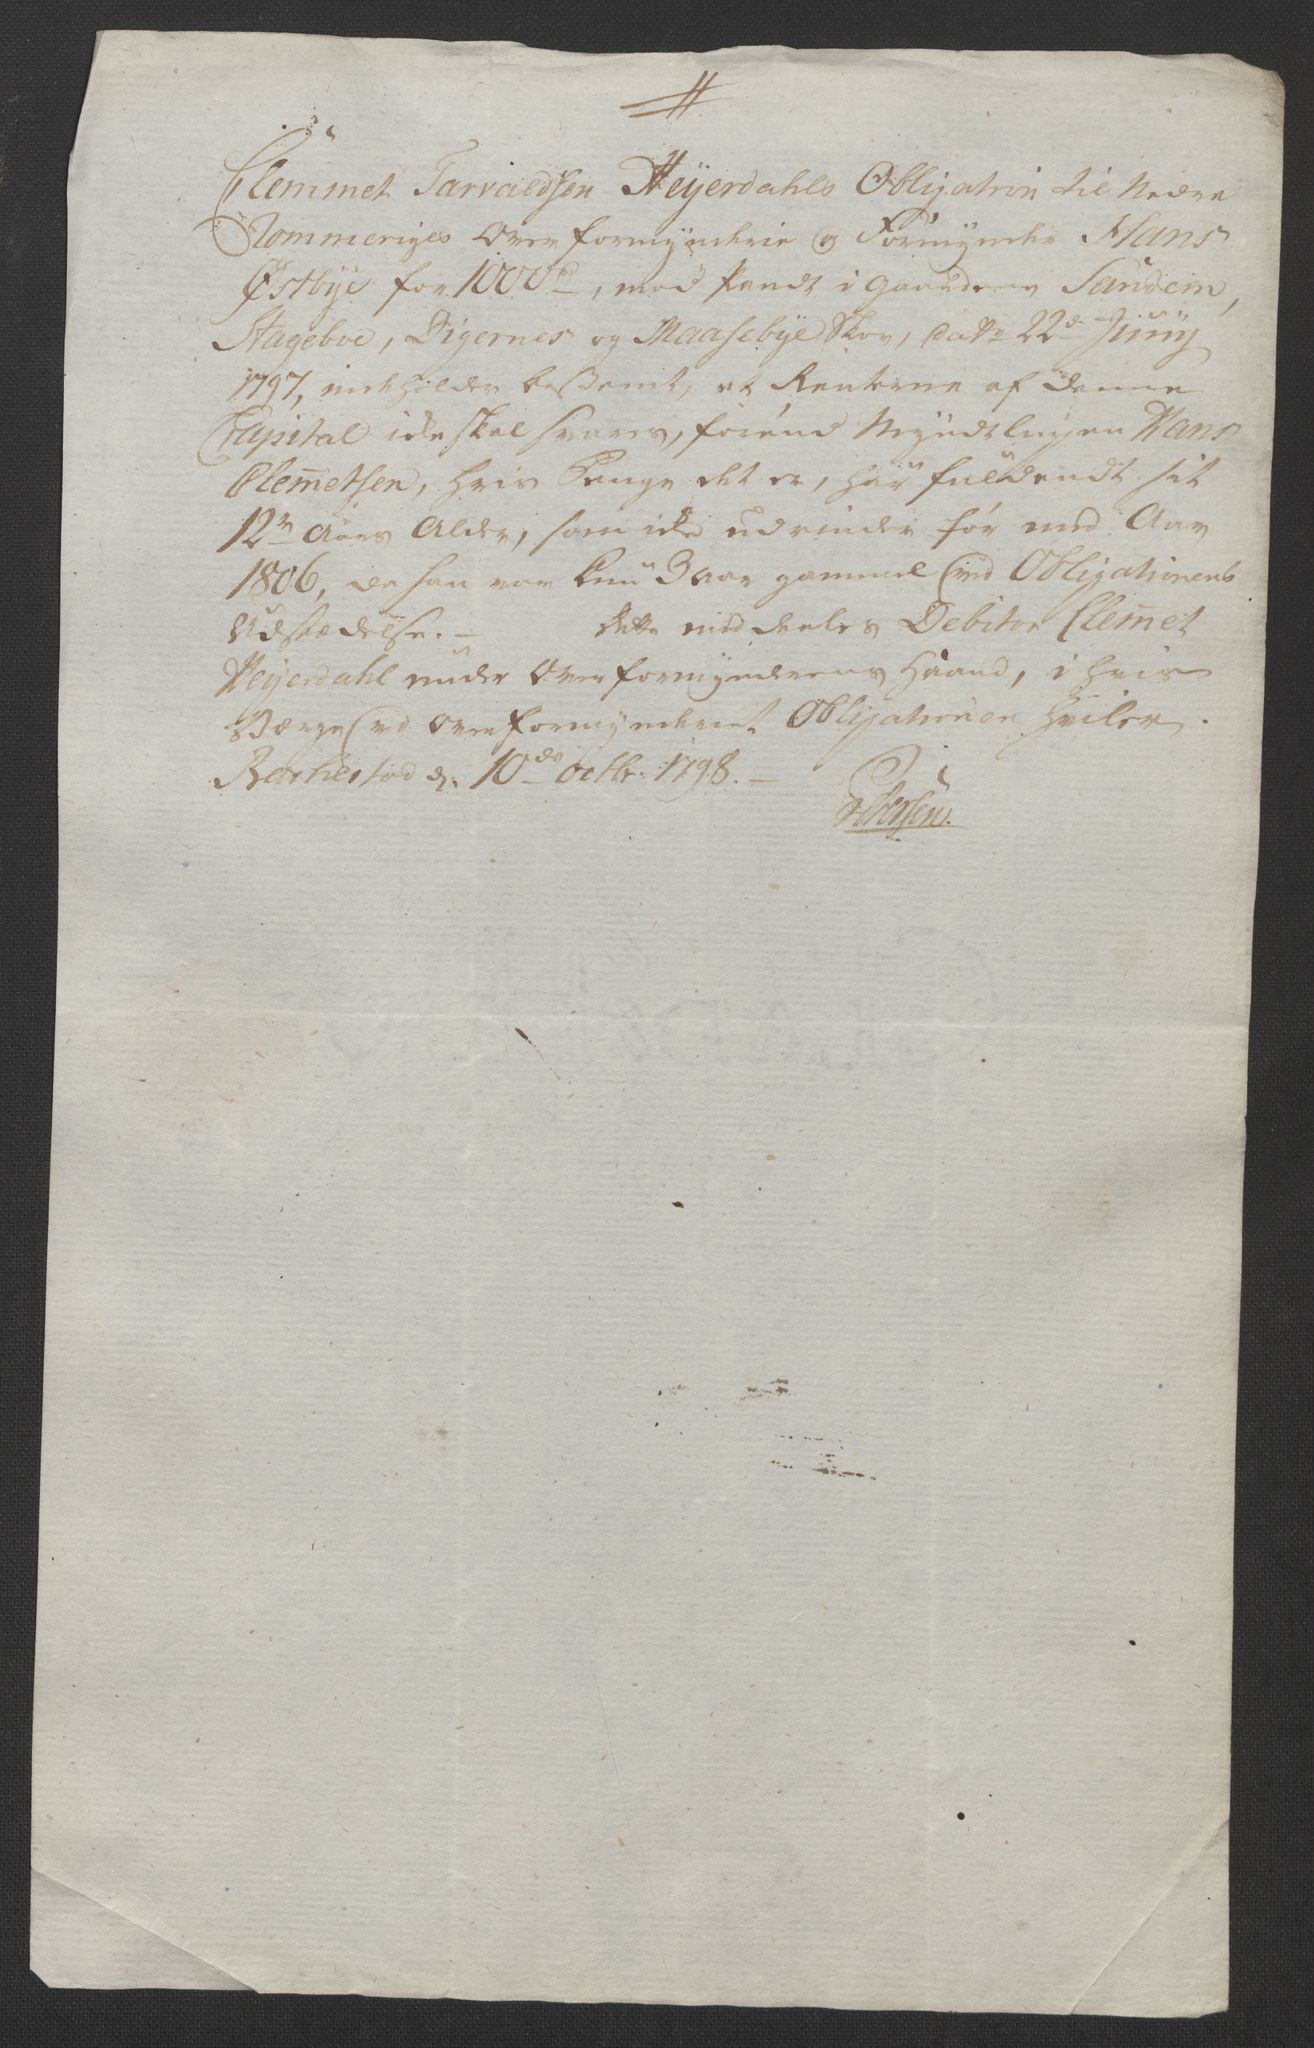 Clemmet Tarvaldsen Heyerdahls Obligation til Nedre
Rommeriges Overformynderie og Formynder Hans
Østbye for 1000 rd, mod Pandt i Gaardene Sandem,
Hageboe, Digernes og Maasebye Skov, dato 22d Juny
1797, indholder bestemt, at Renterne af denne
Capital icke skal svares, førend Myndtlingen Hans
Clemetsen, hvis Penge det er, har fuldendt sit
12te Aars Alder, som icke udrinder før med Aar
1806, da han var kun 3 aar gammel ved Obligationens
Udstædelse. — Dette meddeeles Debitor Clemet
Heyerdahl under Overformynderens Haand, i hvis
Værge ved Overformynderiet Obligationen hviler.
Rachestad d. 10de octbr. 1798. —